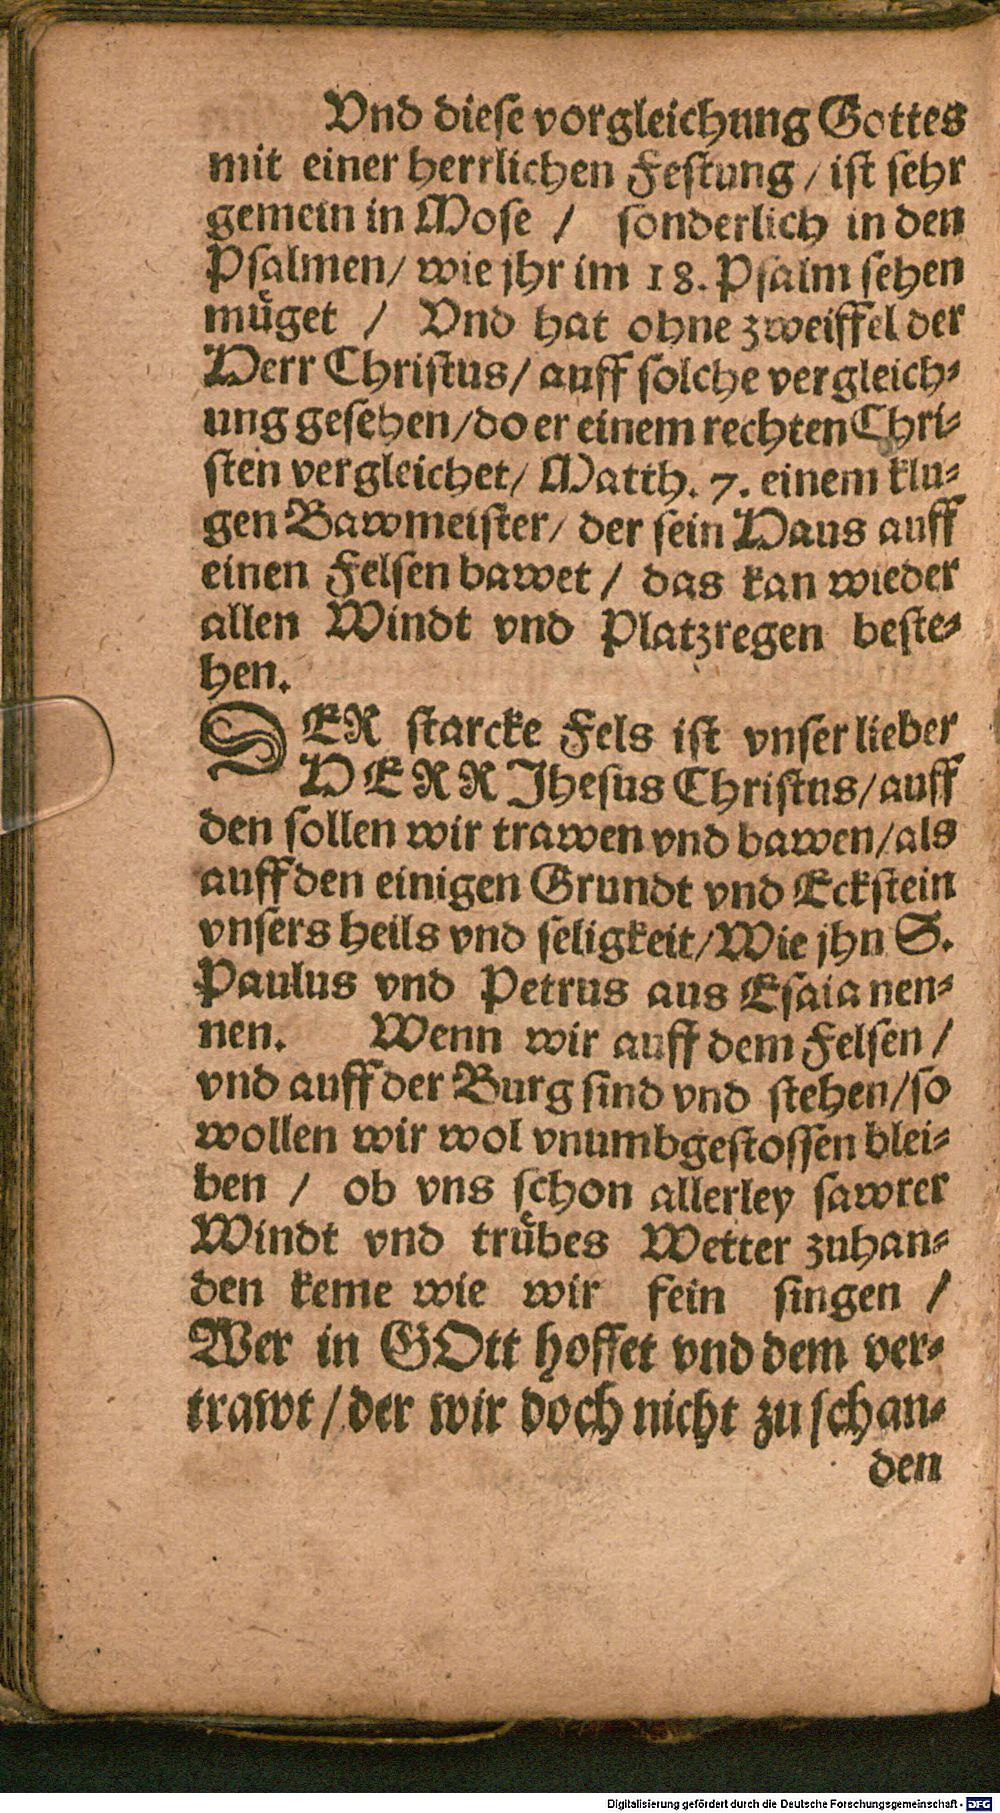 Vnd diese vorgleichung Gottes
mit einer herrlichen Festung / ist sehr
gemein in Mose / sonderlich in den
Psalmen / wie jhr im 18. Psalm sehen
muͤget / Vnd hat ohne zweiffel der
Herr Christus / auff solche vergleich-
ung gesehen / do er einem rechten Chri-
sten vergleichet / Matth. 7. einem klu-
gen Bawmeister / der sein Haus auff
einen Felsen bawet / das kan wieder
allen Windt vnd Platzregen beste-
hen.
DER starcke Fels ist vnser lieber
HERR Jhesus Christus / auff
den sollen wir trawen vnd bawen / als
auff den einigen Grundt vnd Eckstein
vnsers heils vnd seligkeit / Wie jhn S.
Paulus vnd Petrus aus Esaia nen-
nen. Wenn wir auff dem Felsen /
vnd auff der Burg sind vnd stehen / so
wollen wir wol vnumbgestossen blei-
ben / ob vns schon allerley sawrer
Windt vnd truͤbes Wetter zuhan-
den keme wie wir fein singen /
Wer in GOtt hoffet vnd dem ver-
trawt / der wir doch nicht zu schan-
den
Digitalisierung gefördert durch die Deutsche Forschungsgemeinschaft - DFG